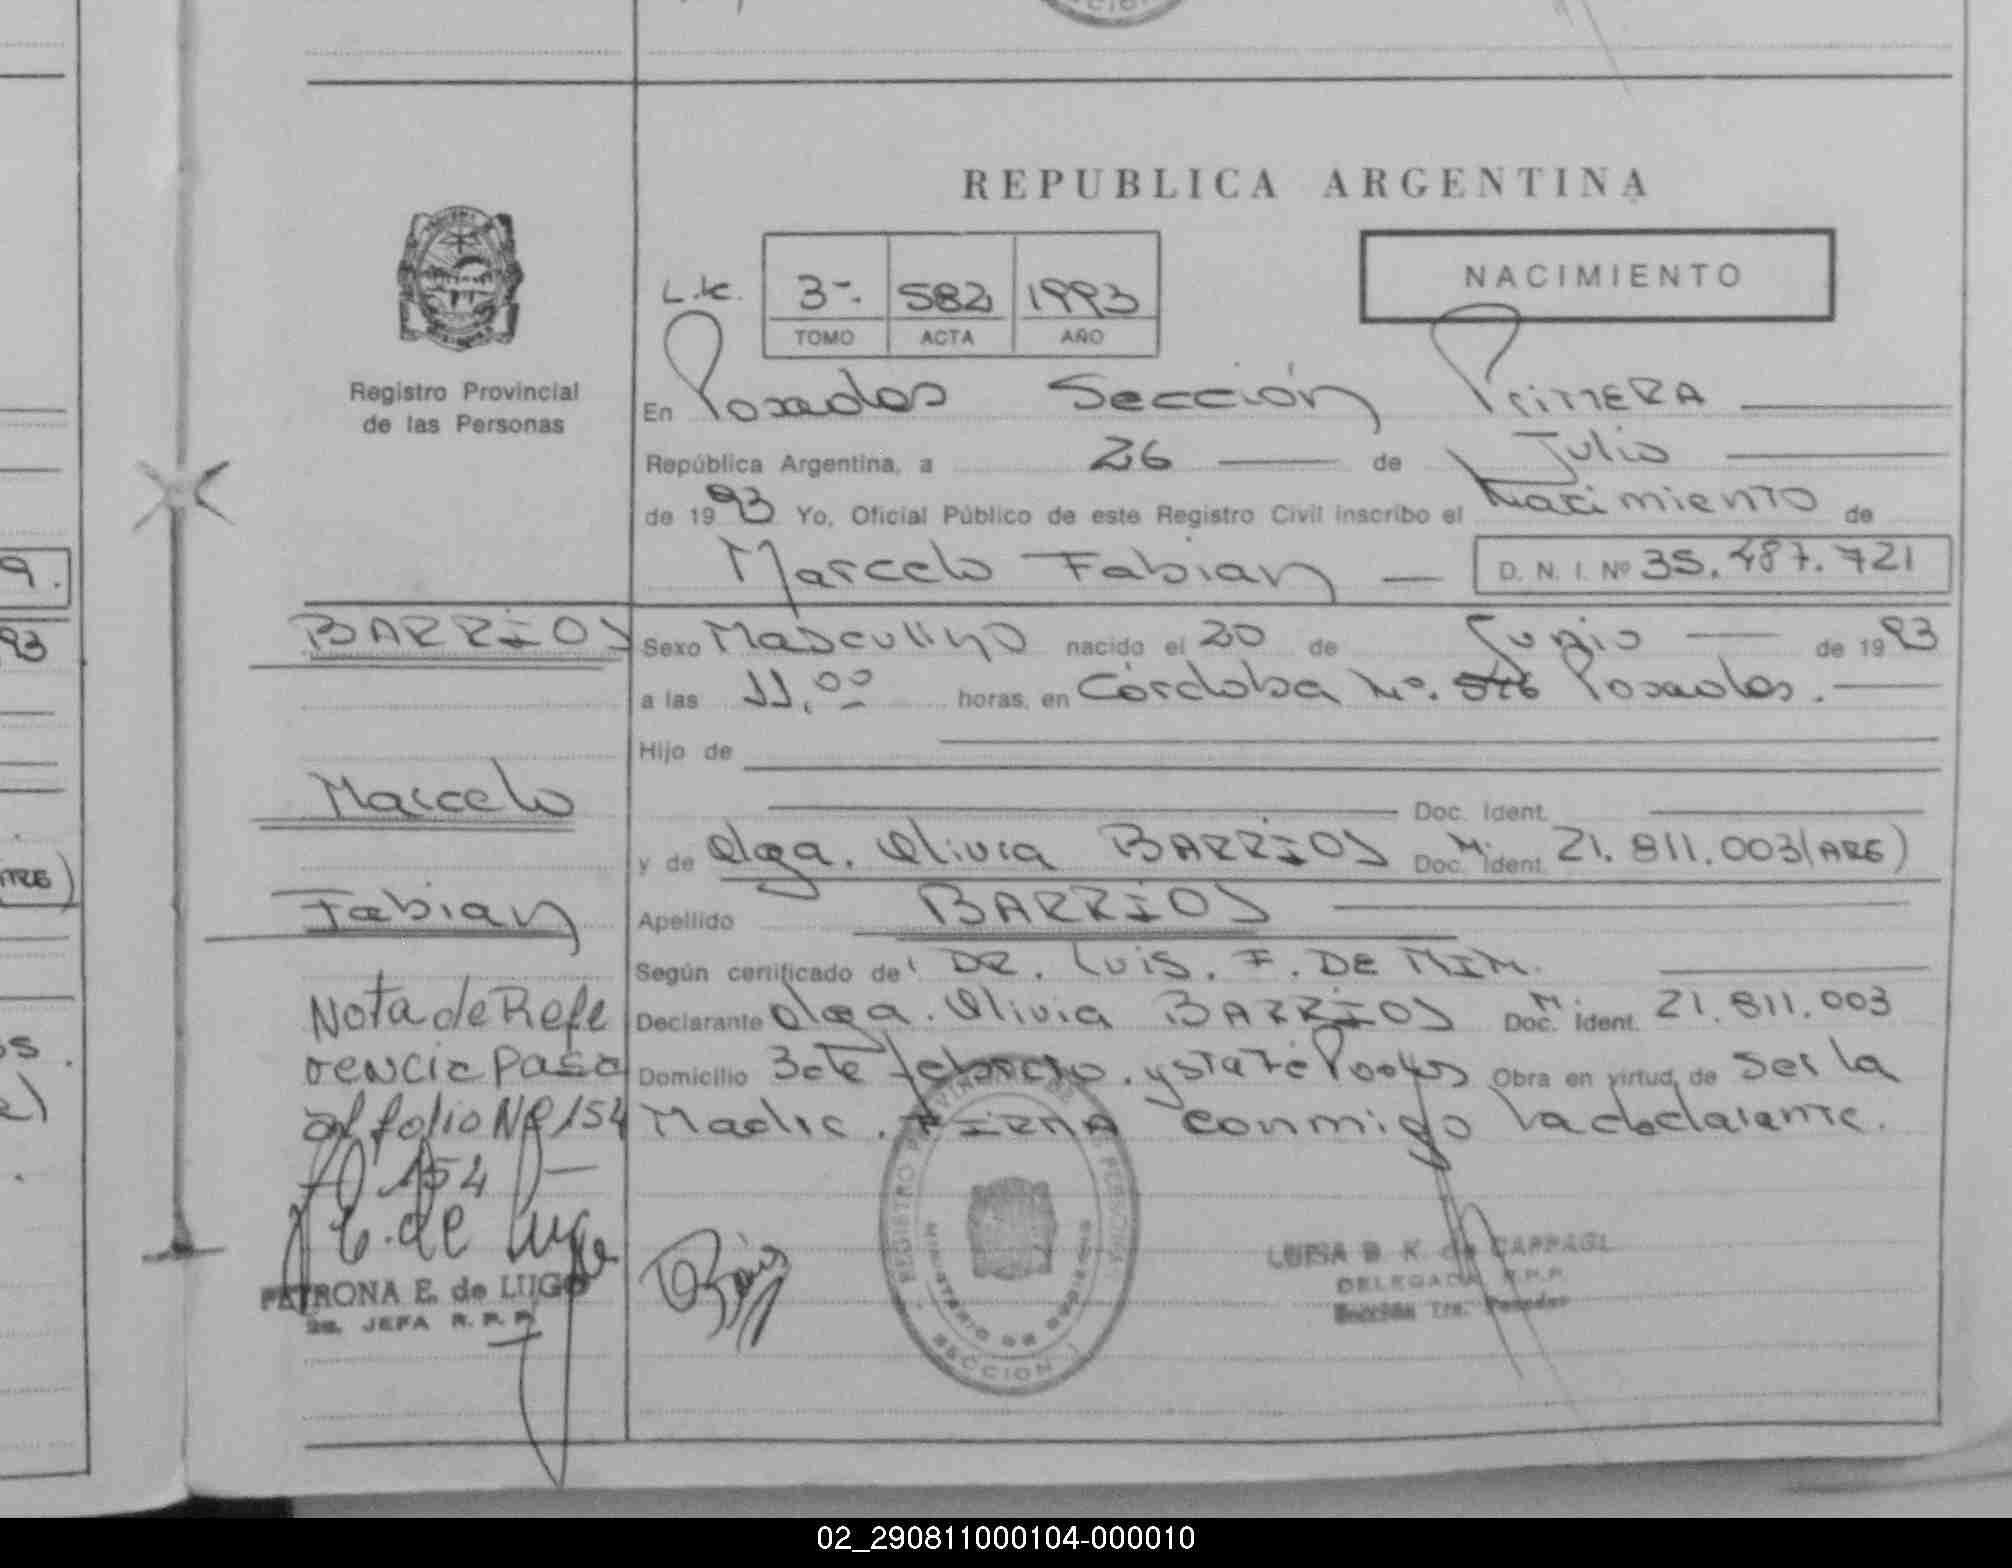 REPUBLICA ARGENTINA
NACIMIENTO
3
582
1993
TOMO
ACTA
AÑO
Registro Provincial
de las Personas
En Posadas Sección PRIMERA
República Argentina, a 26 de Julio
de 1993 Yo, Oficial Público de este Registro Civil inscribo el Nacimiento de
Marcelo Fabian
D. N. I. Nº 35.487.721
BARRIOS
Sexo Masculino nacido el 20 de Junio de 1993
a las 11,00 horas, en Córdoba Nº. Posadas.
Hijo de
Marcelo
Doc. Ident.
y de Olga. Olivia BARRIOS Doc. Ident. M. 21.811.003 (ARG)
Fabian
Apellido BARRIOS
Según certificado de DR. Luis. F. DE MIM.
Nota de Refe
Declarante Olga. Olivia BARRIOS Doc. Ident. M. 21.811.003
rencia Pasa
Domicilio 3 de febrero. y Obra en virtud de ser la
al folio Nº 154
Madre. FIRMA conmigo la declarante.
154
E. de Lugo
PETRONA E. de LUGO
JEFA R. P. P.
REGISTRO PROVINCIAL DE LAS PERSONAS
MINISTERIO DE GOBIERNO
SECCION 1
LUISA B. K. de
DELEGADA R.P.P.
Sección 1ra. Posadas
93
02_290811000104-000010